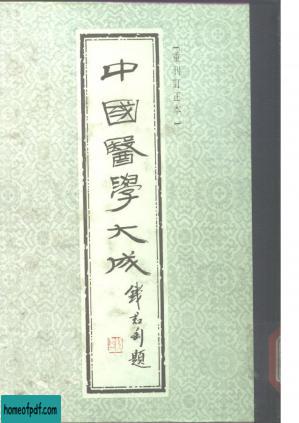 【重刊訂正本】
中國醫學大成
錢君匋題
homeofpdf.com